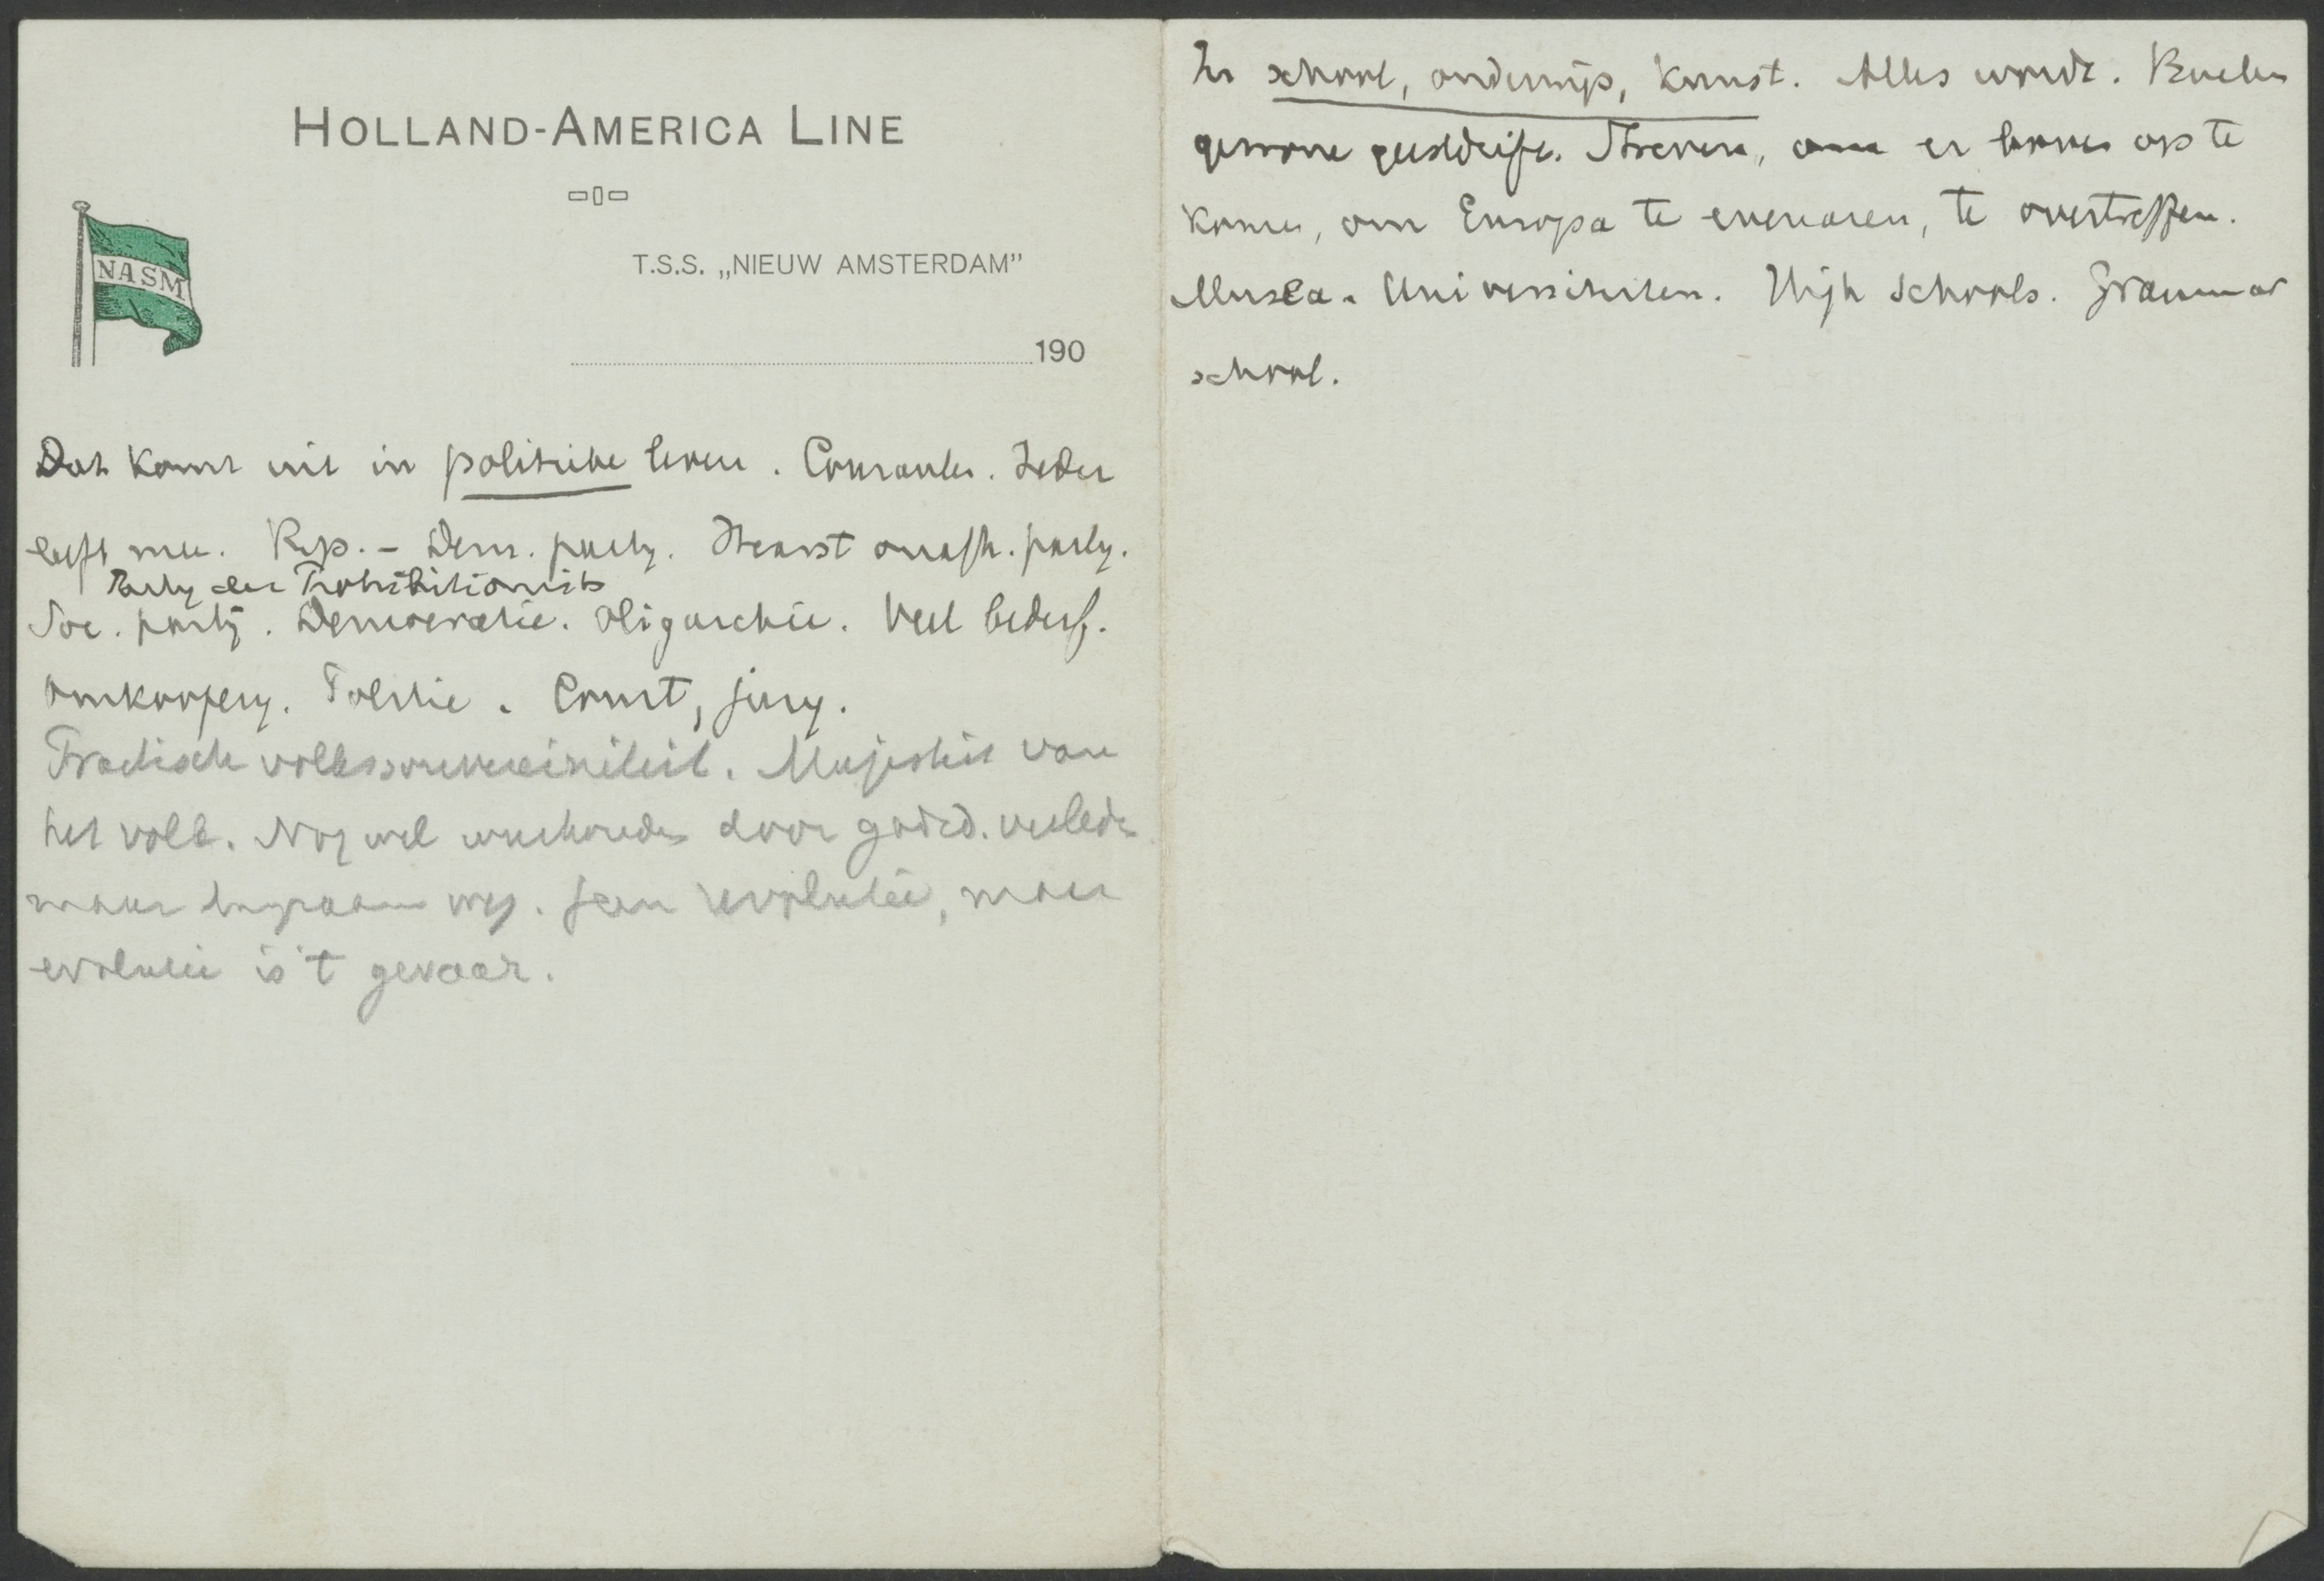 HOLLAND-AMERICA LINE
NASM
T.S.S. „NIEUW AMSTERDAM”
190
Dat komt uit in politieke leven. Couranten. Ieder
leeft mee. Rep. - Dem. party. Hearst onafh. party.
Party der Prohibitionists
Soc. partij. Democratie. Oligarchie. Veel bederf.
Omkoopery. Politie. Court, jury.
Practische volkssouvereiniteit. Majesteit van
het volk. Nog wel weerhouden door godsd. verleden
maar langzaam weg. Geen revolutie, maar
evolutie is 't gevaar.
In school, onderwijs, kunst. Alles wordt.
gewone Streven, om er boven op te
komen, om Europa te evenaren, te overtreffen.
Musea. Universiteiten. High Schools. Grammar
school.